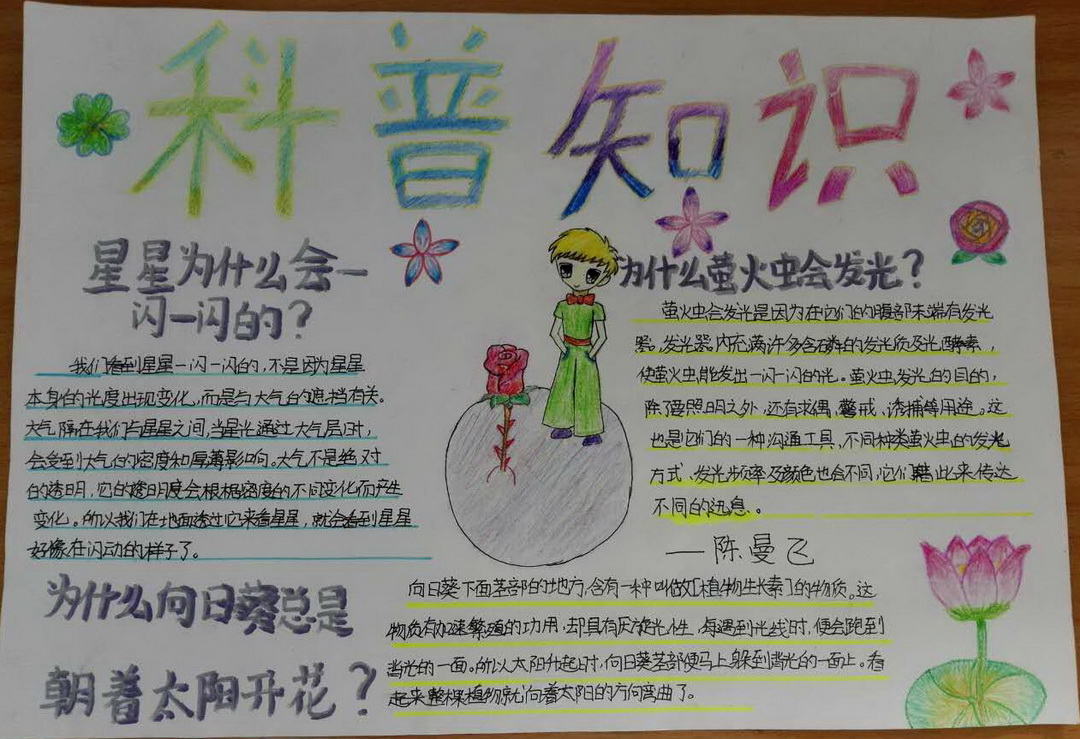 科普知识
星星为什么会一
闪一闪的？
我们看到星星一闪一闪的，不是因为星星
本身的光度出现变化，而是与大气的遮挡有关。
大气隔在我们与星星之间，当星光通过大气层时，
会受到大气的密度和厚薄影响。大气不是绝对
的透明，它的透明度会根据密度的不同变化而产生
变化。所以我们在地面透过它来看星星，就会看到星星
好像在闪动的样子了。
为什么萤火虫会发光？
萤火虫会发光是因为在它们的腹部末端有发光
器，发光器内充满许多含磷的发光质及光酵素，
使萤火虫能发出一闪一闪的光。萤火虫发光的目的，
除了要照明之外，还有求偶、警戒、诱捕等用途。这
也是它们的一种沟通工具，不同种类萤火虫的发光
方式、发光频率及颜色也会不同，它们藉此来传达
不同的讯息。
——陈曼飞
为什么向日葵总是
朝着太阳开花？
向日葵下面茎部的地方，含有一种叫做[植物生长素]的物质。这
物质有加速繁殖的功用，却具有厌旋光性，每遇到光线时，便会跑到
背光的一面。所以太阳升起时，向日葵茎部便马上躲到背光的一面上。看
起来整棵植物就向着太阳的方向弯曲了。